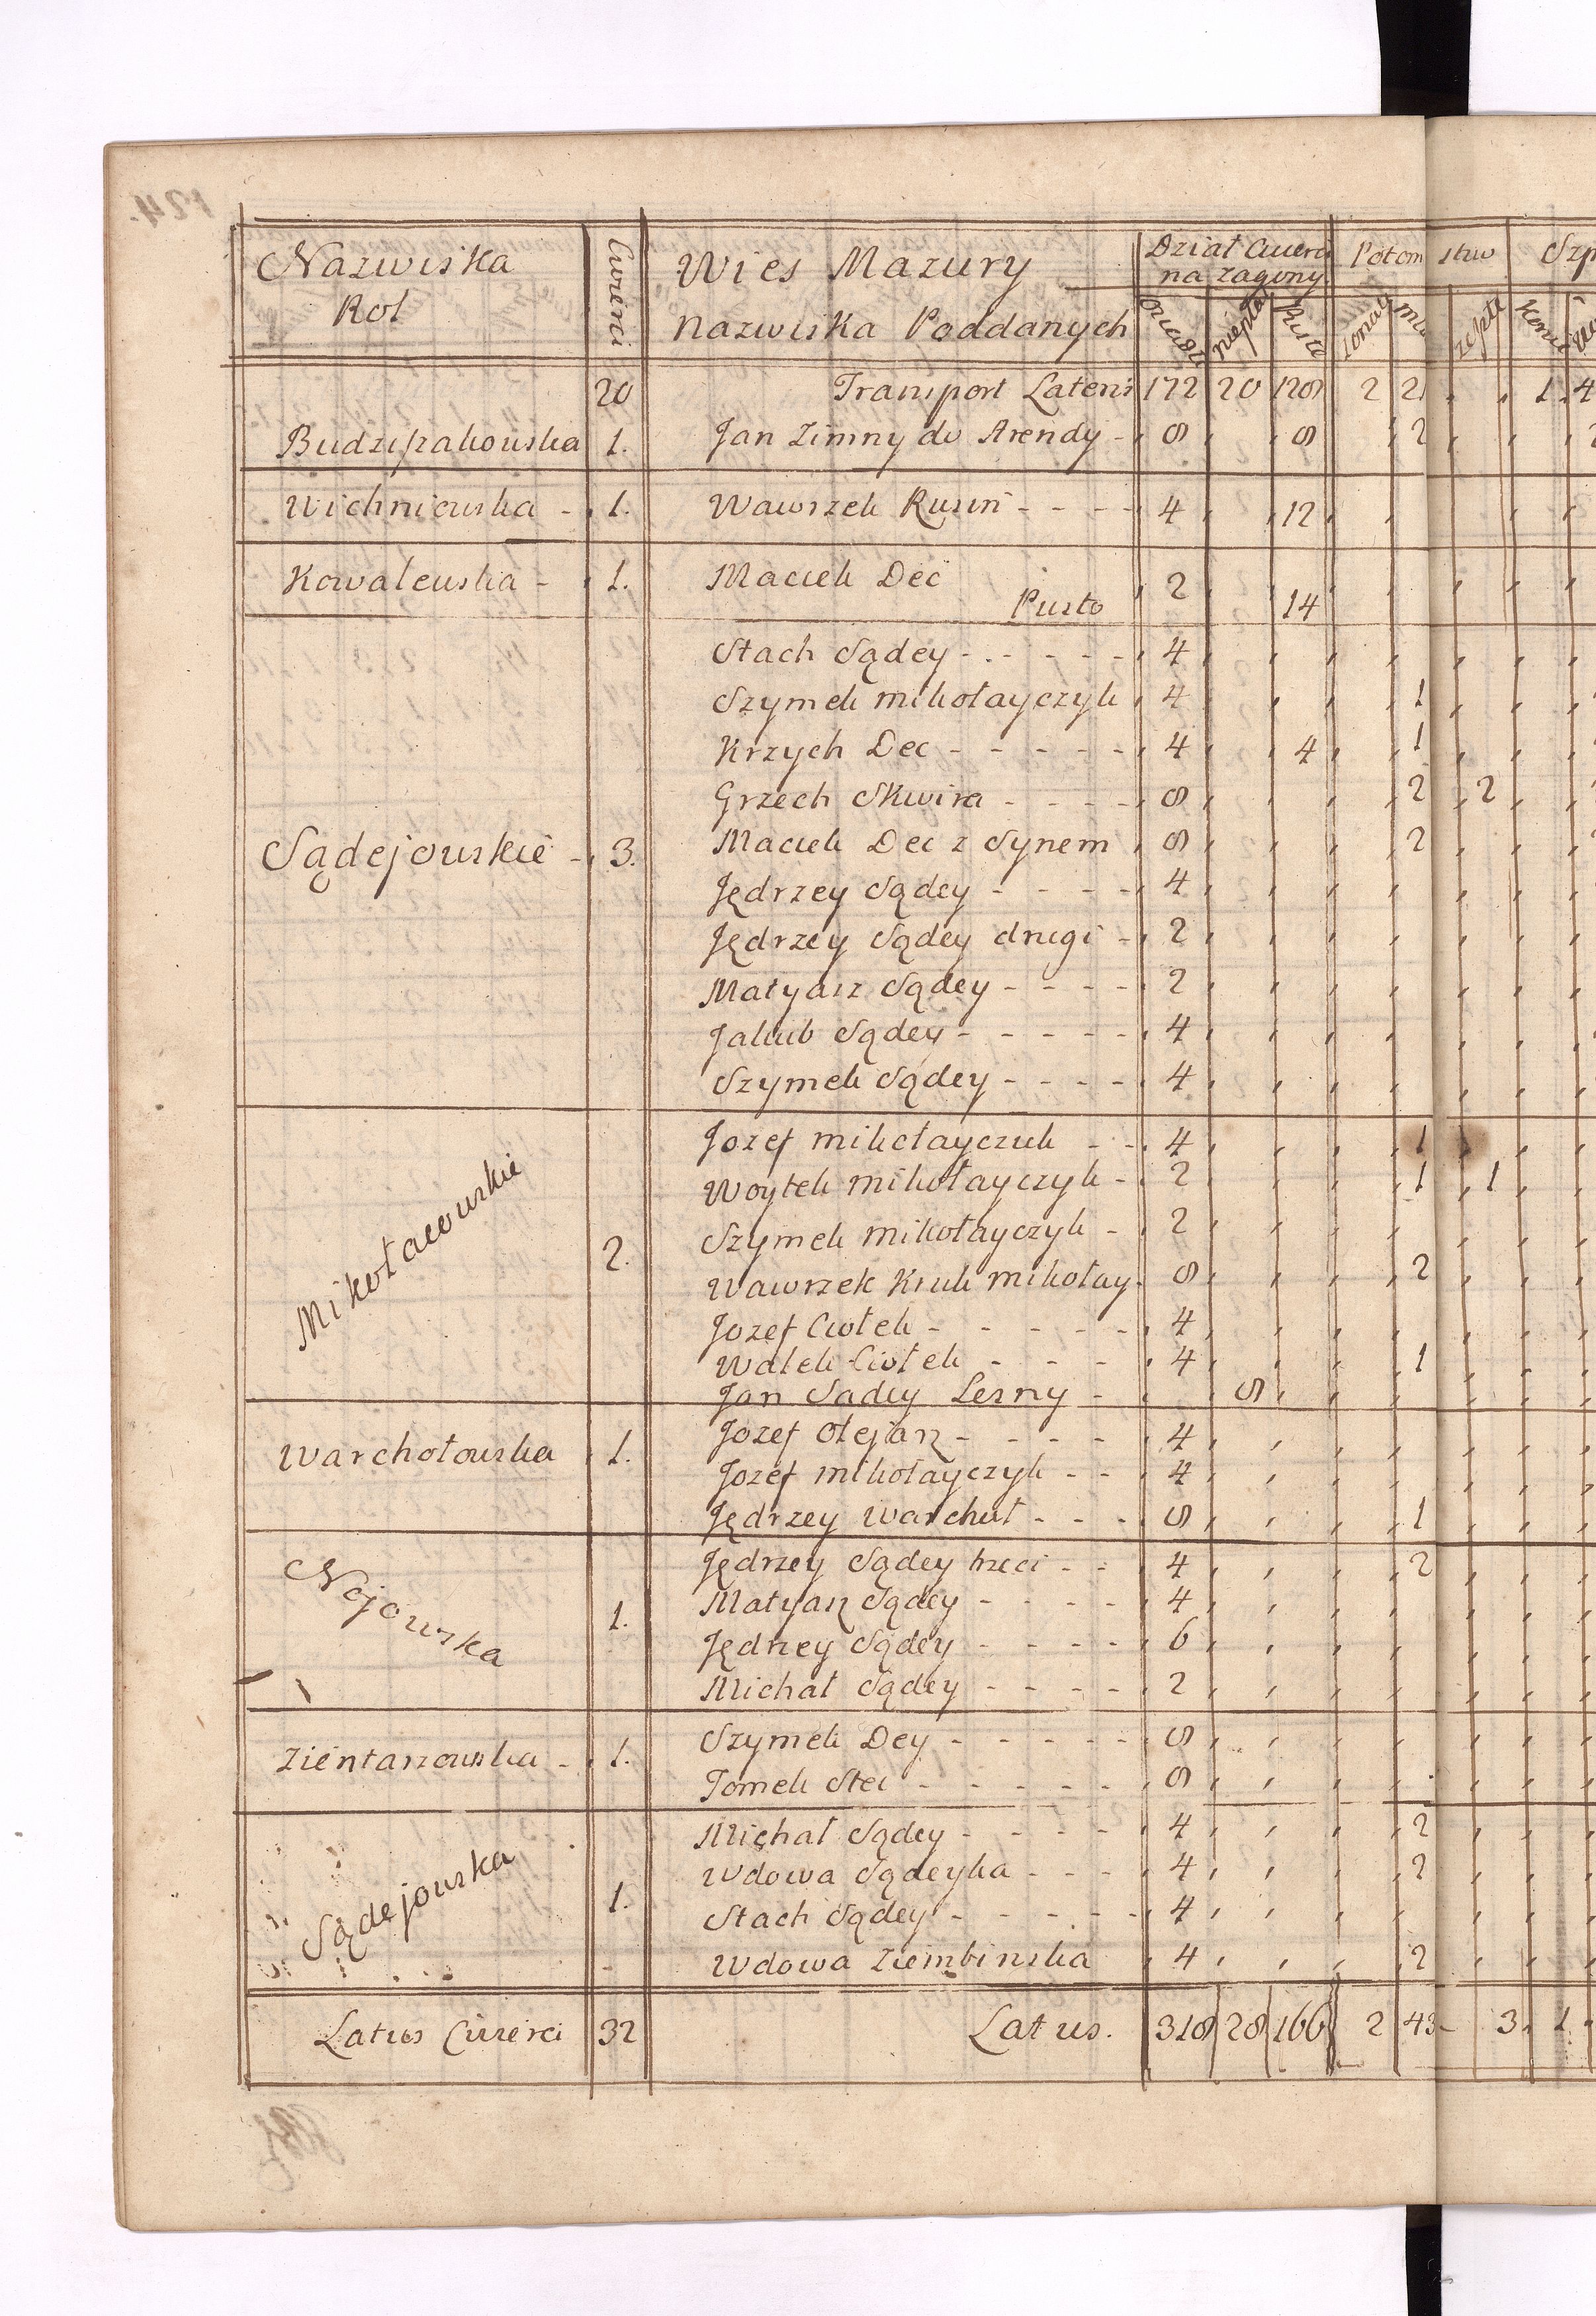 Nazwiska Rol | Cwierci | Wies Mazury | Dział Cwierci na zagony | Potom stwo | Szp
Nazwiska Poddanych | Osiadłe | Puste | Zonaty
20 | Transport Lateris | 172 | 20 | 128 | 2 | 21 | , | , | 1 | 4
1. | Jan Zimny do Arendy - | 8 | 8 | 2
Wichniowska - | 1. | Wawrzek Rusin - - - - | 4 | 12
Kowalewska - | 1. | Maciek Dec | 2
Pusto | 14
Stach Sądey - - - - - | 4
Szymek mikołayczyk | 4 | 1
Krzych Dec - - - - - | 4 | 4 | 1
Grzech Skwira - - - - | 8 | 2 | 2
Sądejowskie - | 3. | Maciek Dec z Synem | 8 | 2
Jędrzey Sądey - - - - | 4
Jędrzey Sądey drugi - | 2
Matyasz Sądey - - - - | 2
Jakub Sądey - - - - - | 4
Szymek Sądey - - - - | 4
Jozef mikołayczuk - - | 4 | 1
Woytek mikołayczyk - | 2 | 1 | 1
Mikołaiowskie | 2. | Szymek mikołayczyk - | 2
Wawrzek Kruk mikołay | 8 | 2
Jozef Ciołek - - - - - | 4
Walek Ciołek - - - | 4 | 1
Jan Sadey Lesny - | 8
Jozef Olejarz - - - - | 4
Warchołowska | 1. | Jozef mikołayczyk - - | 4
Jędrzey Warchuł - - - | 8 | 1
Jędrzey Sądey trzeci - - | 4 | 2
Nojowska | 1. | Matyasz Sądey - - - - | 4
Jędrzey Sądey - - - - | 6
Michał Sądey - - - - | 2
Zientarzowska - | 1. | Szymek Dey - - - - - | 8
Tomek Stec - - - - - | 8
Michał Sądey - - - - | 4 | 2
Sądejowska | 1. | Wdowa Sądeyka - - - | 4 | 2
Stach Sądey - - - - - | 4
Wdowa Ziembinska | 4 | 2
Latus Cwierci | 32 | Latus. | 318 | 28 | 166 | 2 | 43 | 3 | 1